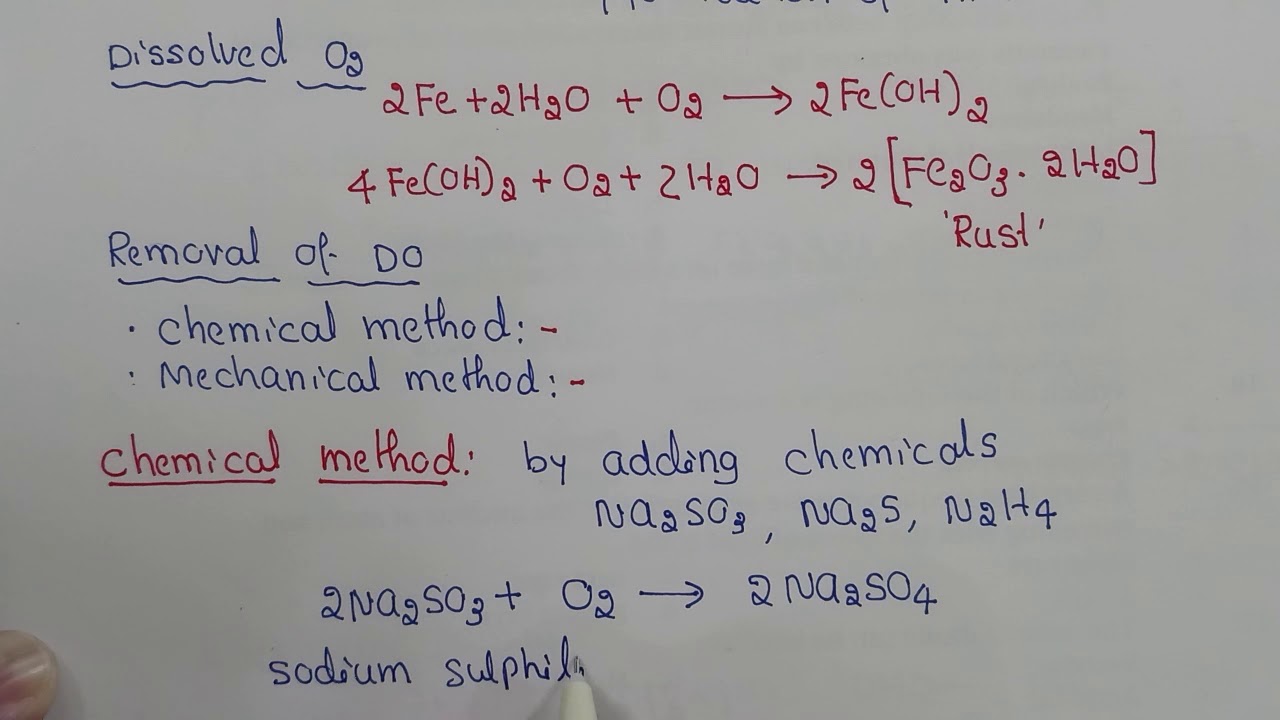 Dissolved O₂
2Fe + 2H₂O + O₂ → 2Fe(OH)₂
4 Fe(OH)₂ + O₂ + 2H₂O → 2 [Fe₂O₃ . 2H₂O]
'Rust'
Removal of DO
. chemical method: -
: Mechanical method: -
chemical method: by adding chemicals
Na₂SO₃, Na₂S, N₂H₄
2Na₂SO₃ + O₂ → 2 Na₂SO₄
sodium